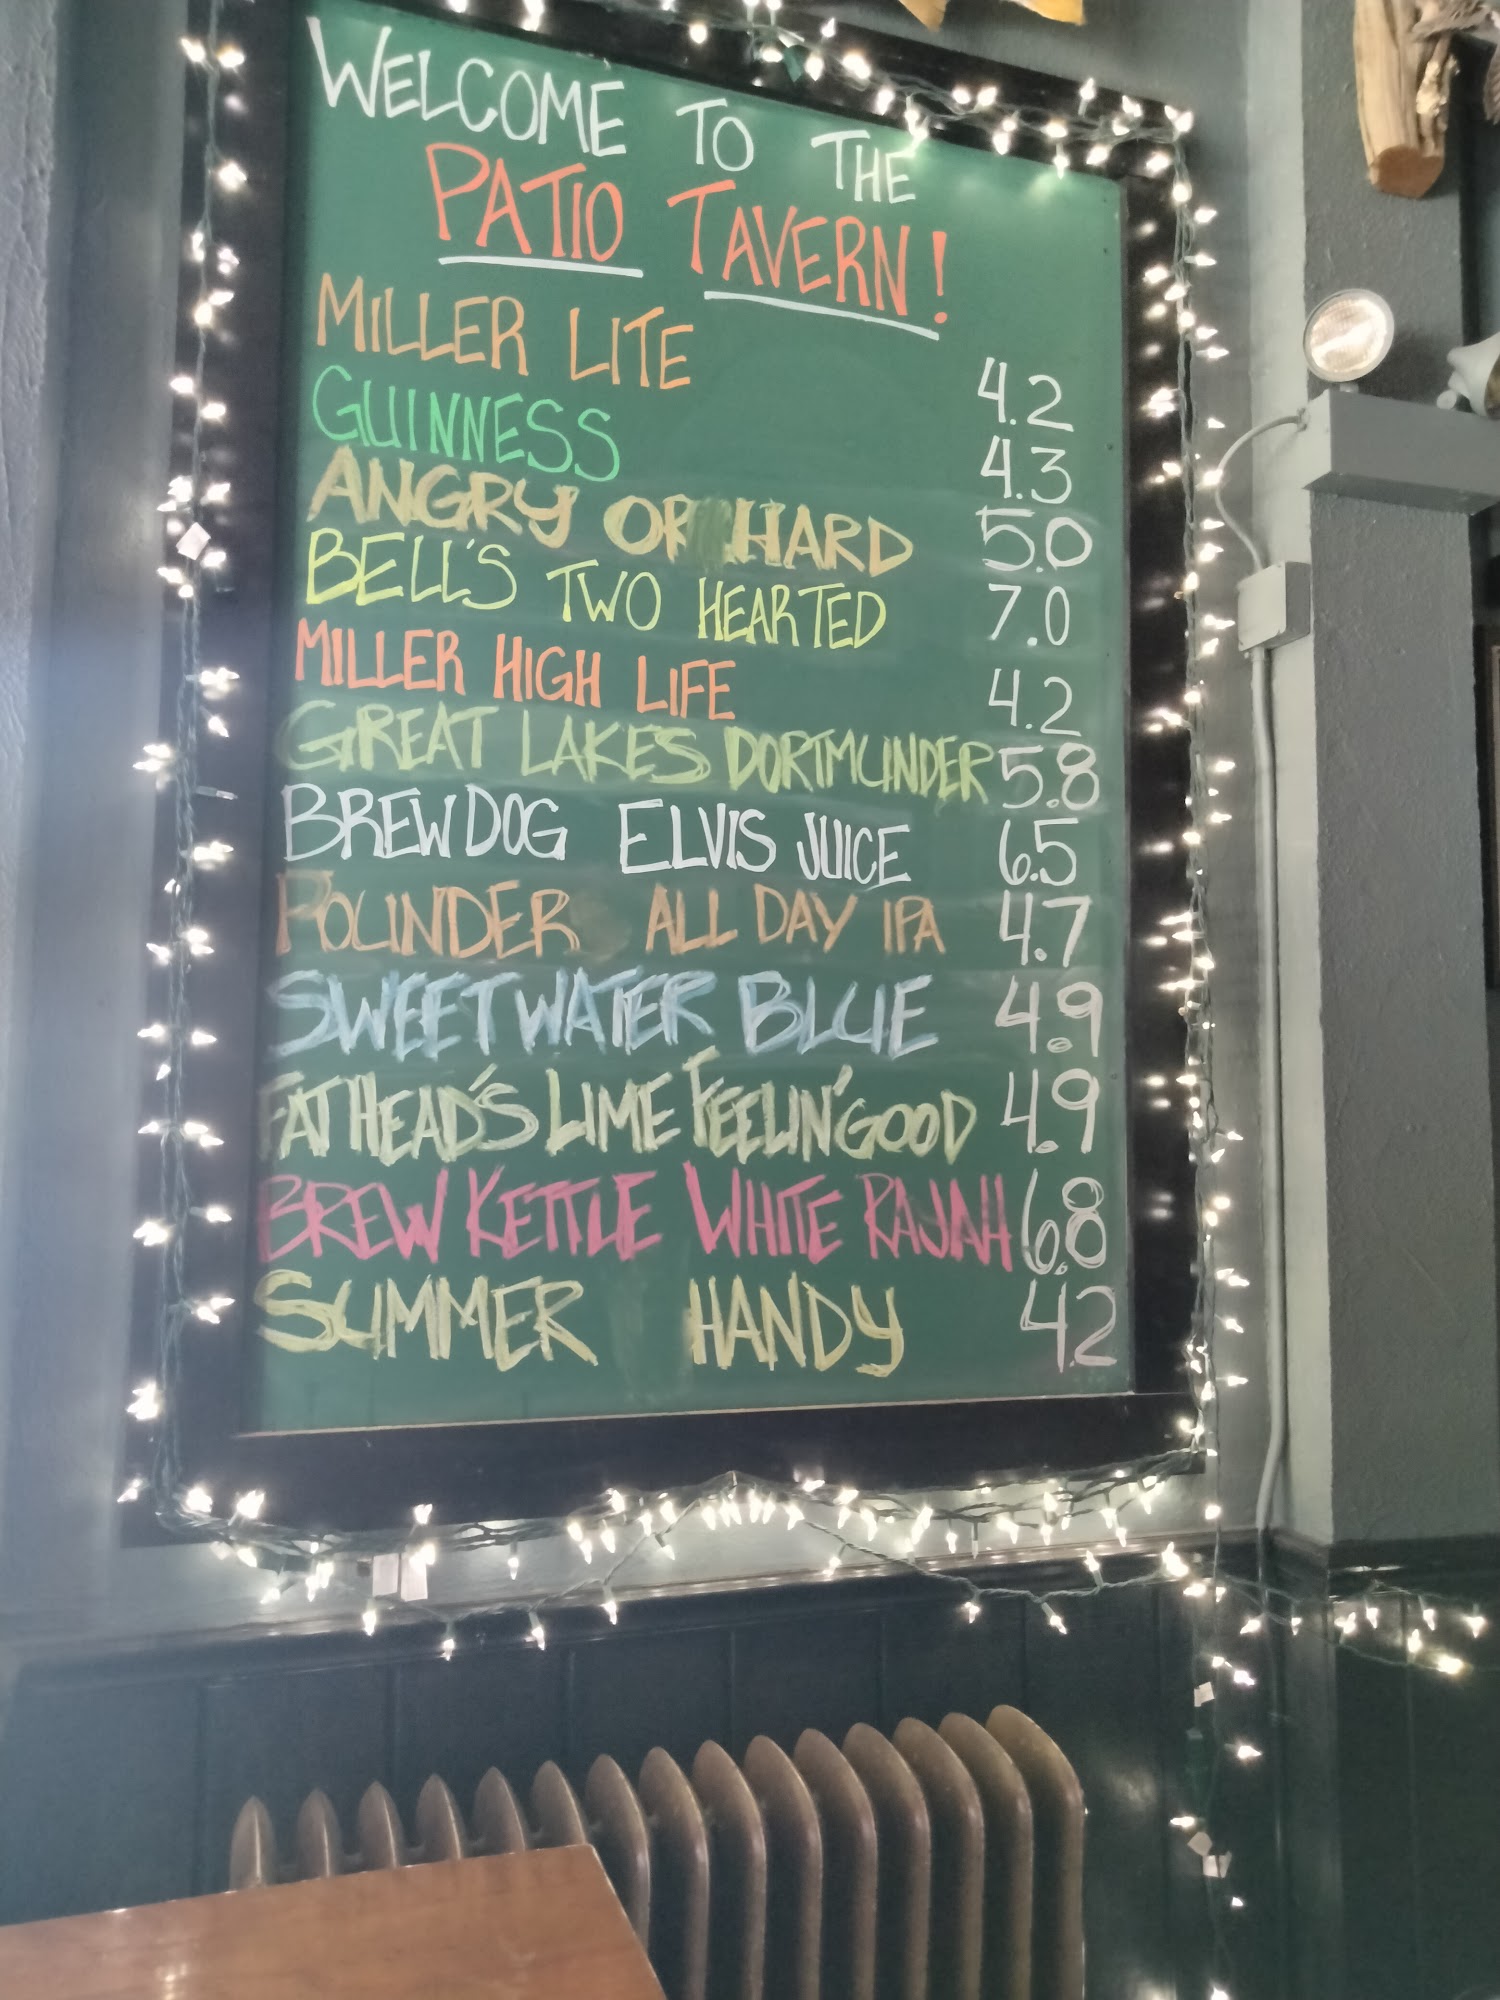 WELCOME TO THE
PATIO TAVERN!
MILLER LITE 4.2
GUINNESS 4.3
ANGRY ORCHARD 5.0
BELL'S TWO HEARTED 7.0
MILLER HIGH LIFE 4.2
GREAT LAKES DORTMUNDER 5.8
BREWDOG ELVIS JUICE 6.5
FOUNDER ALL DAY IPA 4.7
SWEETWATER BLUE 4.9
FATHEAD'S LIME FEELIN' GOOD 4.9
BREW KETTLE WHITE RAJAH 6.8
SUMMER HANDY 4.2